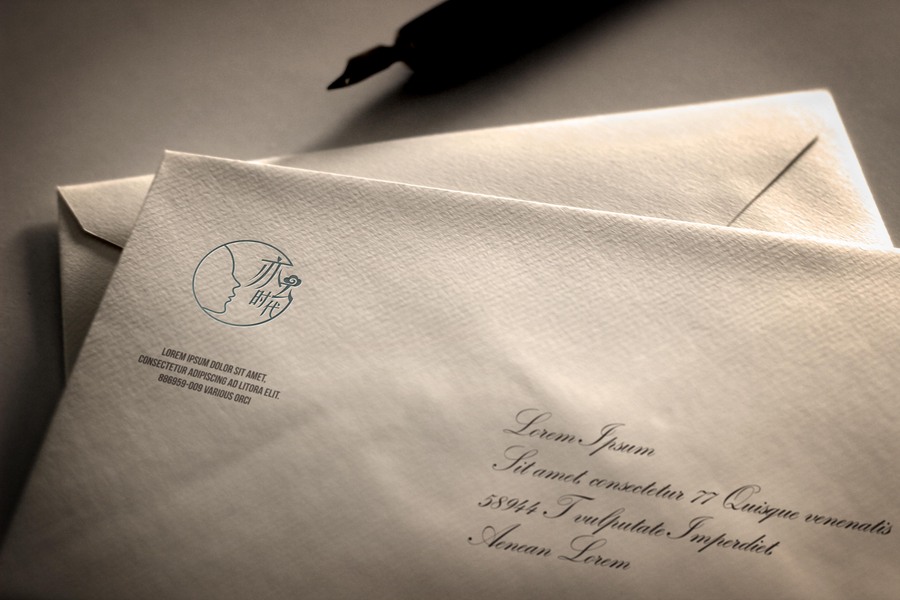 亦公
时代
LOREM IPSUM DOLOR SIT AMET,
CONSECTETUR ADIPISCING AD LITORA ELIT.
886959-009 VARIOUS ORCI
Lorem Ipsum
Sit amet, consectetur 77 Quisque venenatis
58944 T vulputate Imperdiet,
Aenean Lorem